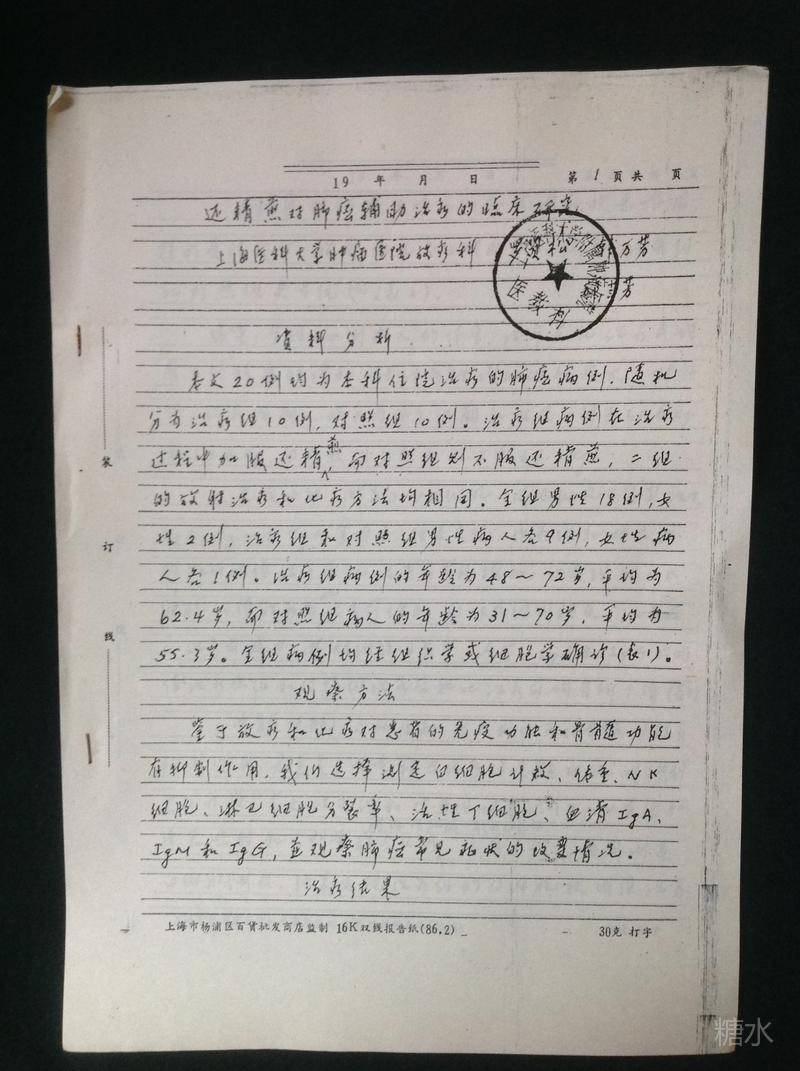 19 年 月 日 第 1 页 共 页
还精煎对肺癌辅助治疗的临床研究
上海医科大学肿瘤医院放疗科 万芳
芳
医教科
资料分析
本文20例均为本科住院治疗的肺癌病例，随机
分为治疗组10例，对照组10例。治疗组病例在治疗
过程中加服还精煎，而对照组则不服还精煎，二组
的放射治疗和化疗方法均相同。全组男性18例，女
性2例，治疗组和对照组男性病人各9例，女性病
人各1例。治疗组病例的年龄为48～72岁，平均为
62.4岁，而对照组病人的年龄为31～70岁，平均为
55.3岁。全组病例均经组织学或细胞学确诊（表1）。
观察方法
鉴于放疗和化疗对患者的免疫功能和骨髓功能
有抑制作用，我们选择测定白细胞计数、体重、NK
细胞、淋巴细胞分裂率、活性T细胞、血清IgA、
IgM和IgG，并观察肺癌常见症状的改变情况。
治疗结果
装
订
线
上海市杨浦区百货批发商店监制 16K双线报告纸(86.2) 30克 打字
糖水